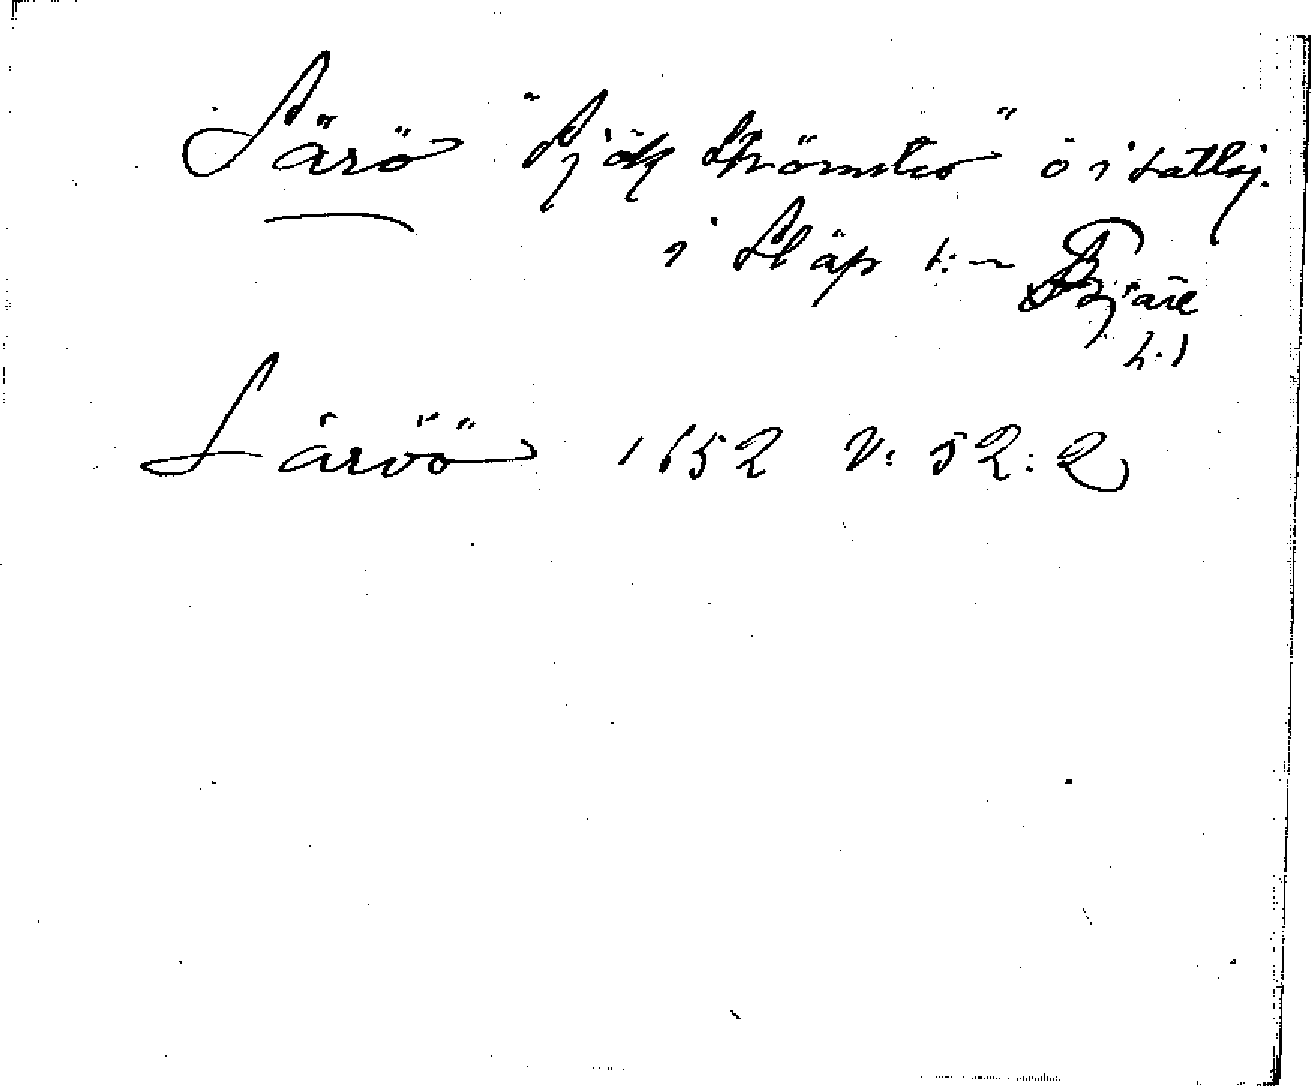 Särö "Sjök Strömstad" ö i Kattlg.
i Släp s:n Fjäre
h.)
Säröö 1652 V: 52: 2